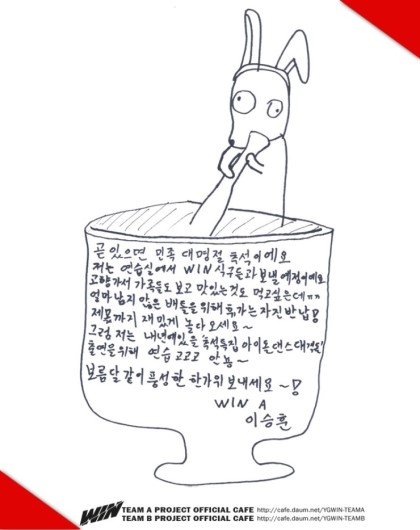 곧 있으면 민족 대명절 추석이에요
저는 연습실에서 WIN 식구들과 보낼 예정이에요
고향가서 가족들도 보고 맛있는것도 먹고싶은데ㅠㅠ
얼마 남지 않은 배틀을 위해 휴가는 자진 반납!
제 몫까지 재밌게 놀다 오세요~
그럼 저는 내년에있을 '추석특집 아이돌댄스대격돌'
출연을 위해 연습 고고고 안뇽~
보름달 같이 풍성한 한가위 보내세요~!
WIN A
이승훈
WIN TEAM A PROJECT OFFICIAL CAFE http://cafe.daum.net/YGWIN-TEAMA
TEAM B PROJECT OFFICIAL CAFE http://cafe.daum.net/YGWIN-TEAMB